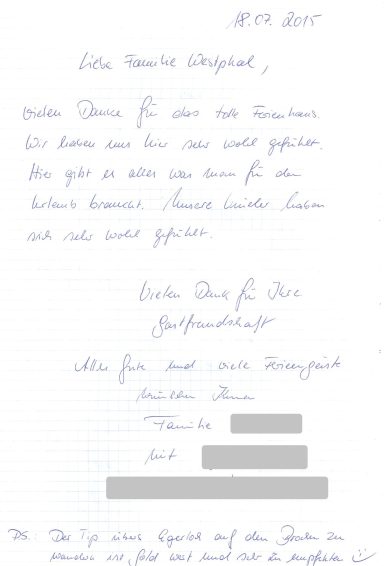 18.07.2015
Liebe Familie Westphal,
vielen Danke für das tolle Ferienhaus.
Wir haben uns hier sehr wohl gefühlt.
Hier gibt es alles was man für den
Urlaub braucht. Unsere Kinder haben
sich sehr wohl gefühlt.
Vielen Dank für Ihre
Gastfreundschaft
Alles gute und viele Feriengäste
wünschen Ihnen
Familie
mit
PS.: Der Tip übers Eckerloch auf den Brocken zu
wandern ist Gold wert und sehr zu empfehlen ☺